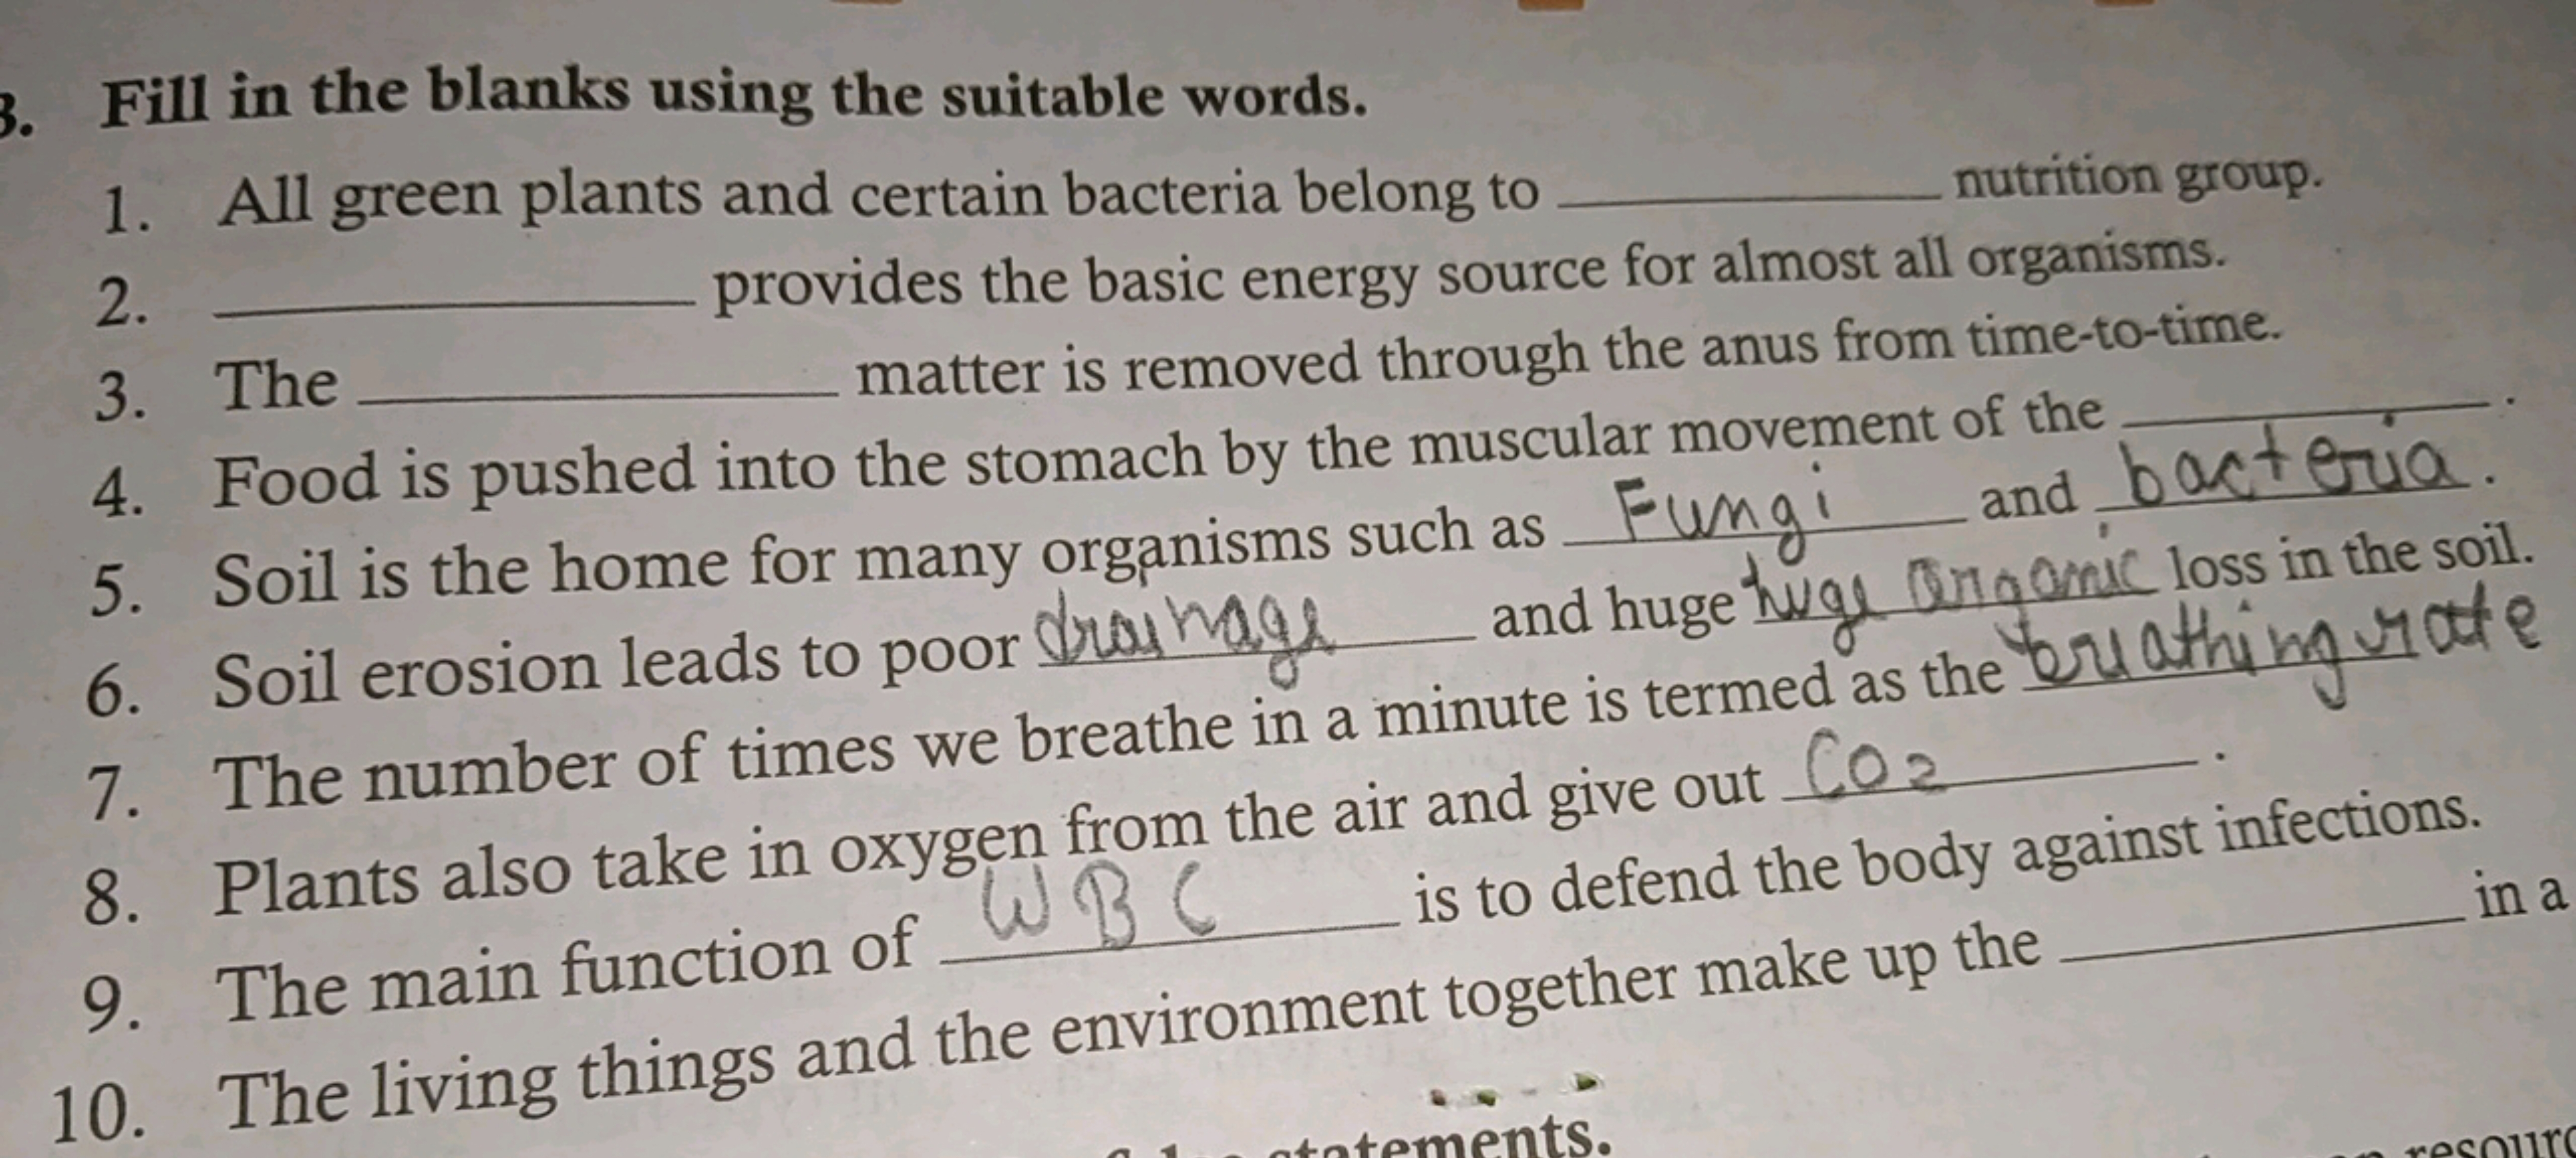 3. Fill in the blanks using the suitable words.
1. All green plants and certain bacteria belong to ____________ nutrition group.
2. ____________ provides the basic energy source for almost all organisms.
3. The ____________ matter is removed through the anus from time-to-time.
4. Food is pushed into the stomach by the muscular movement of the ____________.
5. Soil is the home for many organisms such as Fungi and bacteria.
6. Soil erosion leads to poor drainage and huge huge organic loss in the soil.
7. The number of times we breathe in a minute is termed as the breathing rate
8. Plants also take in oxygen from the air and give out CO2.
9. The main function of WBC is to defend the body against infections.
10. The living things and the environment together make up the ____________ in a
statements.